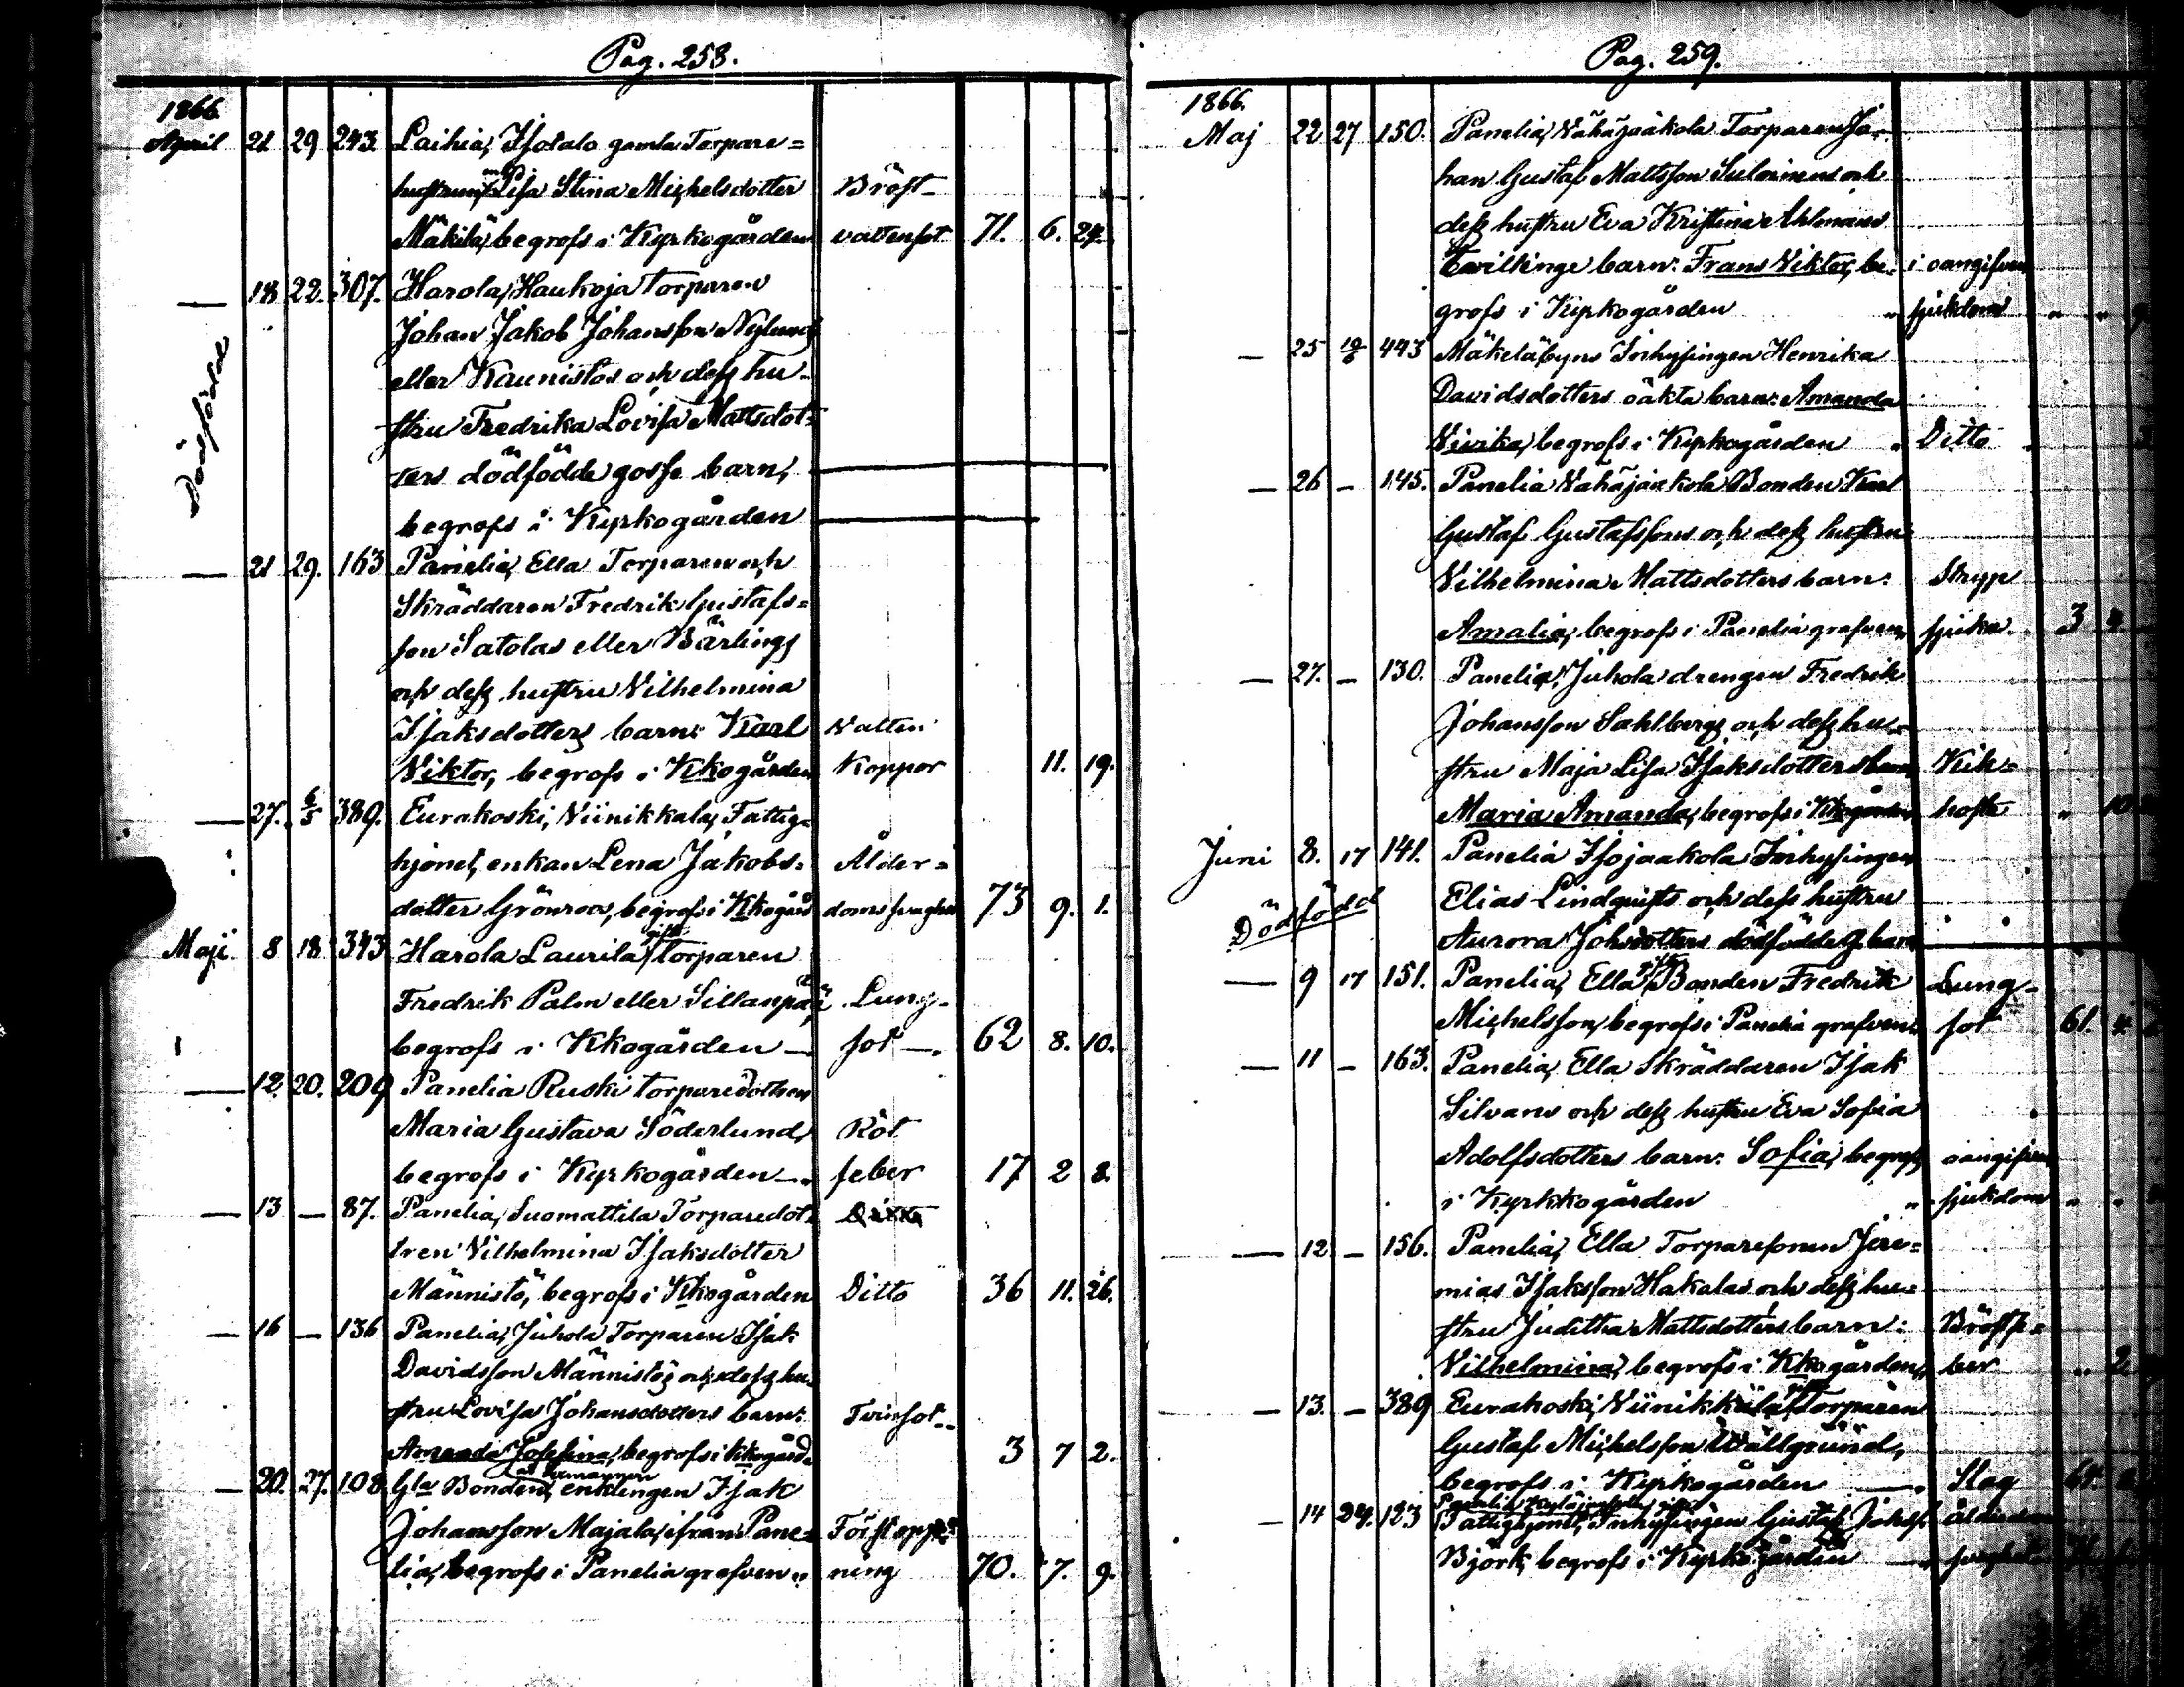 Pag. 258.
1866.
April 21 29 243. Laihia, Isotalo gamla Torpare=
hustrun enkan Lisa Stina Michelsdotter Bröst-
Mäkilä, begrofs i Kyrkogården vattensot 71. 6. 24.
— 18 22. 307. Harola, Haukoja Torparen
Johan Jakob Johansson Nylunds
eller Kaunistos och dess hu-
Dödfödd stru Fredrika Lovisa Mattsdot-
ters dödfödde gosse barn,
begrofs i Kyrkogården
— 21 29. 163 Panelia, Ella Torparen och
Skräddaren Fredrik Gustafs=
son Satolas eller Bärlings
och dess hustru Vilhelmina
Isaksdotters barn: Karl Vatten
Viktor, begrofs i Kkogården Koppor 11. 19.
— 27. 6/5 389. Eurakoski, Viinikkala, Fattig-
hjonet, enkan Lena Jakobs- Ålder=
dotter Grönroos, begrofs i Kkogård doms svaghet 73 9. 1.
Maji 8 18 343 Harola Laurila gifte Torparen
Fredrik Palm eller Sillanpää Lung-
begrofs i Kkogården — sot —. 62 8. 10.
— 12. 20. 209 Panelia Ruski torparedottren
Maria Gustava Söderlund, Röt
begrofs i Kyrkogården —. feber 17 2 8.
— 13 — 87. Panelia, Suomattila Torparedot=
tren Vilhelmina Isaksdotter
Männistö, begrofs i Kkogården Ditto 36 11. 26.
— 16 — 136 Panelia, Juhola Torparen Isak
Davidsson Männistös och dess hu-
stru Lovisa Johansdotters barn: Tvinsot.
Amanda Josefina, begrofs i Kkogård. 3 7 2.
— 20. 27. 108. Gla Bonden, enklingen Isak
Johansson Majala, ifrån Pane= Förstopp=
lia, begrofs i Panelia grafven „ ning 70. 7. 9.
Pag. 259.
1866.
Maj 22 27 150. Panelia, Vähäjaakola Torparen Jo-
han Gustaf Mattsson Suloinens och
dess hustru Eva Kristina Ahlmans
Tvillinge barn: Frans Viktor, be- i oangifven
grofs i Kyrkogården „ sjukdom „ „ 9
— 25 10/6 443 Mäkeläbyns Inhysingen Henrika
Davidsdotters oäkta barn: Amanda
begrofs i Kyrkogården „ Ditto
— 26 — 145. Panelia Vähäjaakola Bonden Karl
Gustaf Gustafssons och dess hustru
Vilhelmina Mattsdotters barn: Stryp
Amalia, begrofs i Panelia grafven, sjuka 3
— 27. — 130. Panelia, Juhola drengen Fredrik
Johansson Sahlbergs och dess hu-
stru Maja Lisa Isaksdotters barn Kik=
Maria Amanda, begrofs i Kkogården hosta „ 10
Juni 8. 17 141. Panelia Isojaakola Inhysingen
Dödfödd Elias Lindquists och dess hustru
Aurora Johsdotters dödfödde g. barn
— 9 17 151. Panelia, Ella gifte Bonden Fredrik Lung-
Michelsson, begrofs i Panelia grafven. sot 61. 4.
— 11 — 163. Panelia, Ella Skräddaren Isak
Silvans och dess hustru Eva Sofia
Adolfsdotters barn: Sofia, begrofs oangifven
i Kyrkkogården „ sjukdom „ „
— 12 — 156. Panelia, Ella Torparesonen Jere=
mias Isaksson Hakalas och dess hu=
stru Juditha Mattsdotters barn: Bröstfe=
Vilhelmina, begrofs i Kkogården, ber „ 2
— 13. — 389 Eurakoski, Viinikkala, Torparen
Gustaf Michelsson Wällgrund,
begrofs i Kyrkogården —. Slag 64.
— 14 24. 123 Fattighjonet, Inhysingen Gustaf Johss. ålderdom
Björk, begrofs i Kyrkogården —